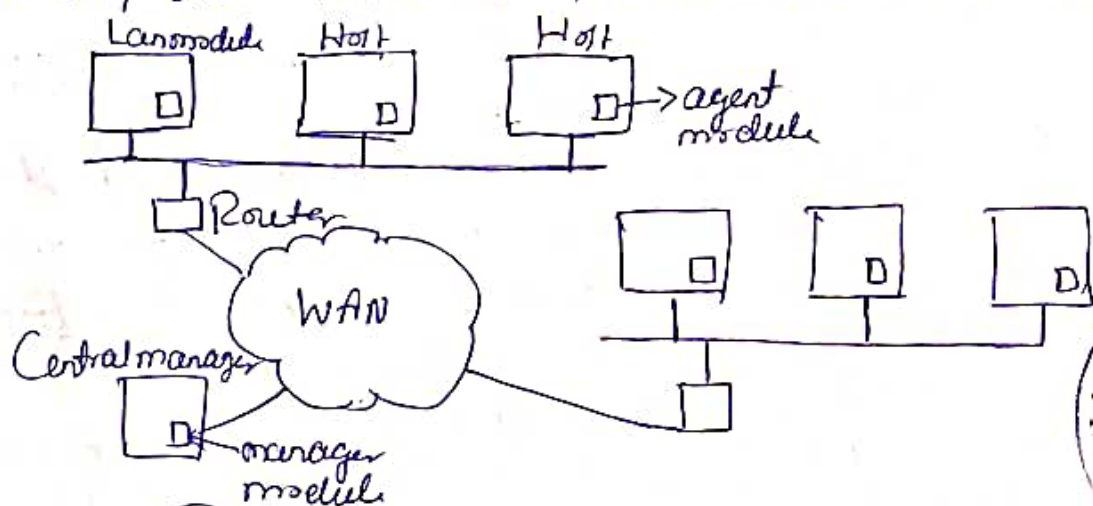 Lanmodule Host Host
agent
module
Router
WAN
Central manager
manager
module